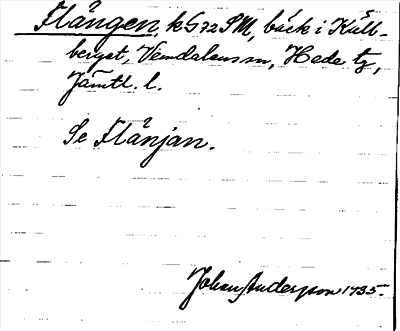 Flången, k G 72 SM, bäck i Käll-
berget, Vemdalens sn, Hede tg,
Jämtl. l.
Se Flånjan.
Johan Andersson 1935.